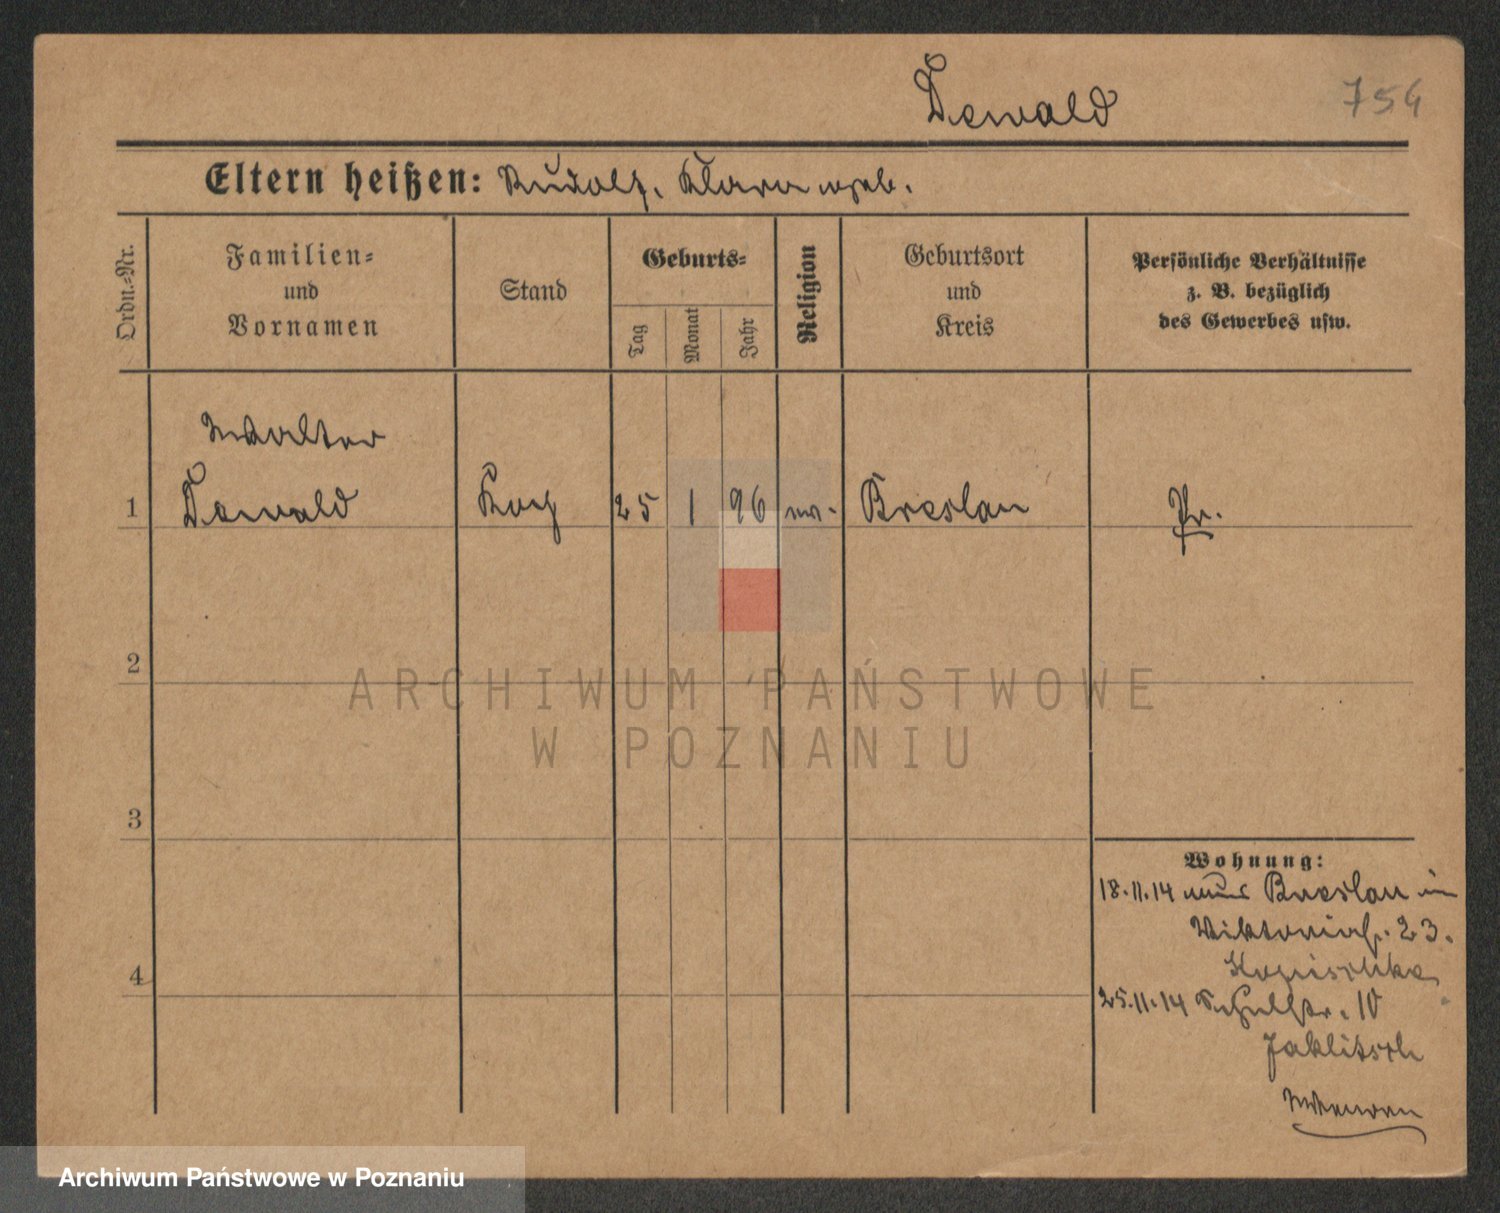 Dewald
754
Eltern heißen: Rudolf, Klara ungeb.
Ordn.-Nr.
Familien-
und
Vornamen
Stand
Geburts-
Tag
Monat
Jahr
Religion
Geburtsort
und
Kreis
Persönliche Verhältnisse
z. B. bezüglich
des Gewerbes usw.
Walter
1 Dewald Koch 25 1 96 ev. Breslau Pr.
2
3
4
Wohnung:
18.11.14 aus Breslau in
Viktoriastr. 23.
25.11.14 Schulstr. 10
Jaklitsch
ARCHIWUM PAŃSTWOWE
W POZNANIU
Archiwum Państwowe w Poznaniu